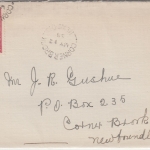 Mr J. R. Gushue
P.O Box 236
Corner Brook
Newfoundl